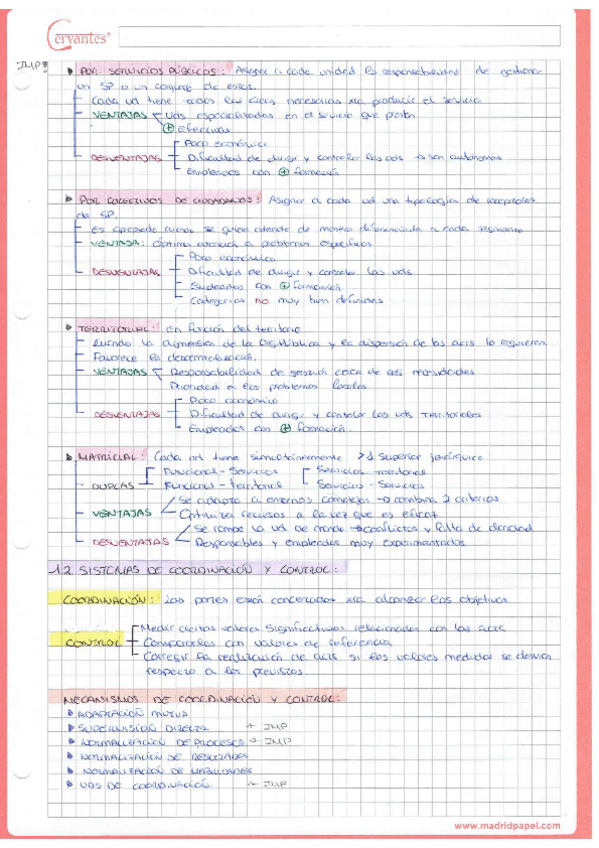 Cervantes
IMP!
POR SERVICIOS PÚBLICOS: Asignar a cada unidad la responsabilidad de gestionar
un SP o un conjunto de estos.
Cada ud tiene todos las áreas necesarias xra producir el servicio
VENTAJAS Uds especializadas en el servicio que presta
+ Efectivas
Poco económico
DESVENTAJAS Dificultad de dirigir y controlar las uds → son autónomas
Empleados con + formación
POR COLECTIVOS DE CIUDADANOS: Asignar a cada ud una tipología de receptores
de SP.
Es apropiado cuando se quiere atender de manera diferenciada a cada segmento
VENTAJA: Óptima atención a problemas específicos
Poco económico
DESVENTAJAS Dificultad de dirigir y controlar las uds
Empleados con + formación
Categorías no muy bien definidas
TERRITORIAL: en función del territorio
Cuando la dimensión de la Org. Pública y la dispersión de las acts lo requieren
Favorece la descentralización.
VENTAJAS Responsabilidad de gestión cerca de las necesidades
Prioridad a los problemas locales
Poco económico
DESVENTAJAS Dificultad de dirigir y controlar las uds territoriales
Empleados con + formación.
MATRICIAL: Cada ud tiene simultáneamente >1 superior jerárquico
Funcional - Servicios Servicios - territorial
DUPLAS Funcional - territorial Servicios - Servicios
Se adapta a entornos complejos → combina 2 criterios
VENTAJAS Optimiza recursos a la vez que es eficaz
Se rompe la ud de mando → conflictos y falta de claridad
DESVENTAJAS Responsables y empleados muy experimentados
1.2 SISTEMAS DE COORDINACIÓN Y CONTROL:
COORDINACIÓN: Las partes están concertadas xra alcanzar los objetivos
Medir ciertos valores significativos relacionados con las acts
CONTROL Compararlos con valores de referencia
Corregir la realización de acts si los valores medidos se desvían
respecto a los previstos.
MECANISMOS DE COORDINACIÓN Y CONTROL:
ADAPTACIÓN MUTUA
SUPERVISIÓN DIRECTA → IMP
NORMALIZACIÓN DE PROCESOS → IMP
NORMALIZACIÓN DE RESULTADOS
NORMALIZACIÓN DE HABILIDADES
UDS DE COORDINACIÓN. → IMP
www.madridpapel.com